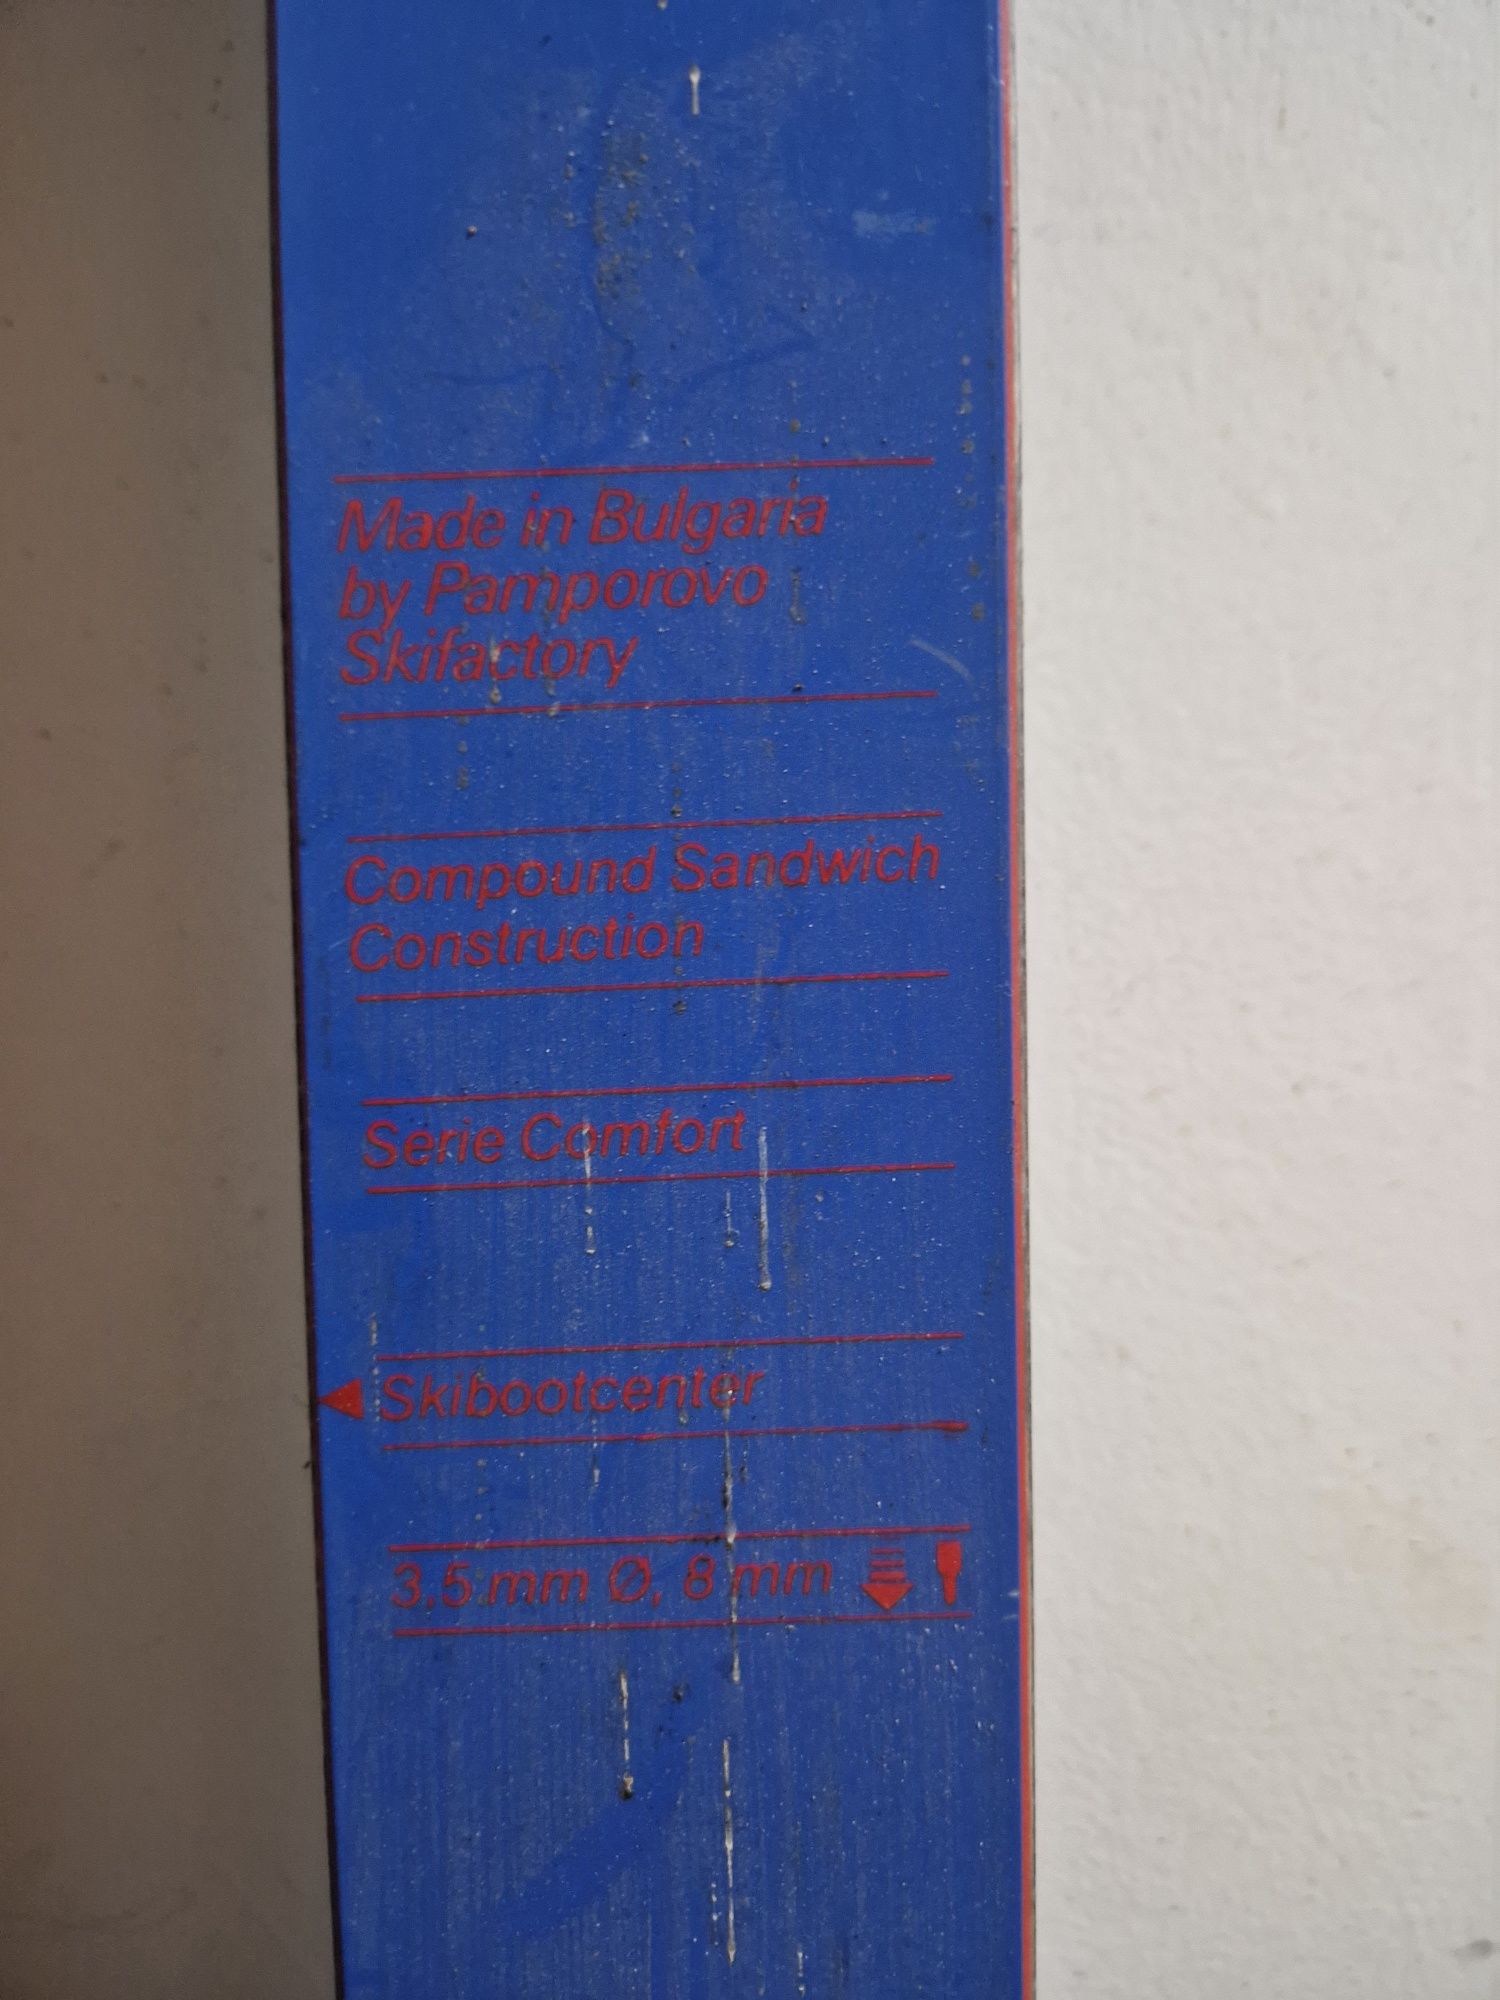 Made in Bulgaria
by Pamporovo
Skifactory
Compound Sandwich
Construction
Serie Comfort
Skibootcenter
3.5 mm Ø, 8 mm